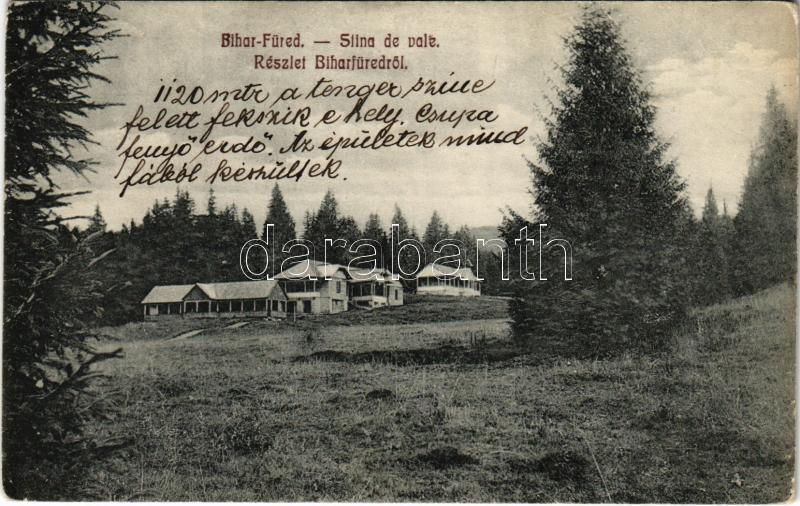 Bihar-Füred. — Stina de vale.
Részlet Biharfüredről.
1120 mtr a tenger szine
felett fekszik e hely. Csupa
fenyő erdő. Az épületek mind
fából készültek.
darabanth